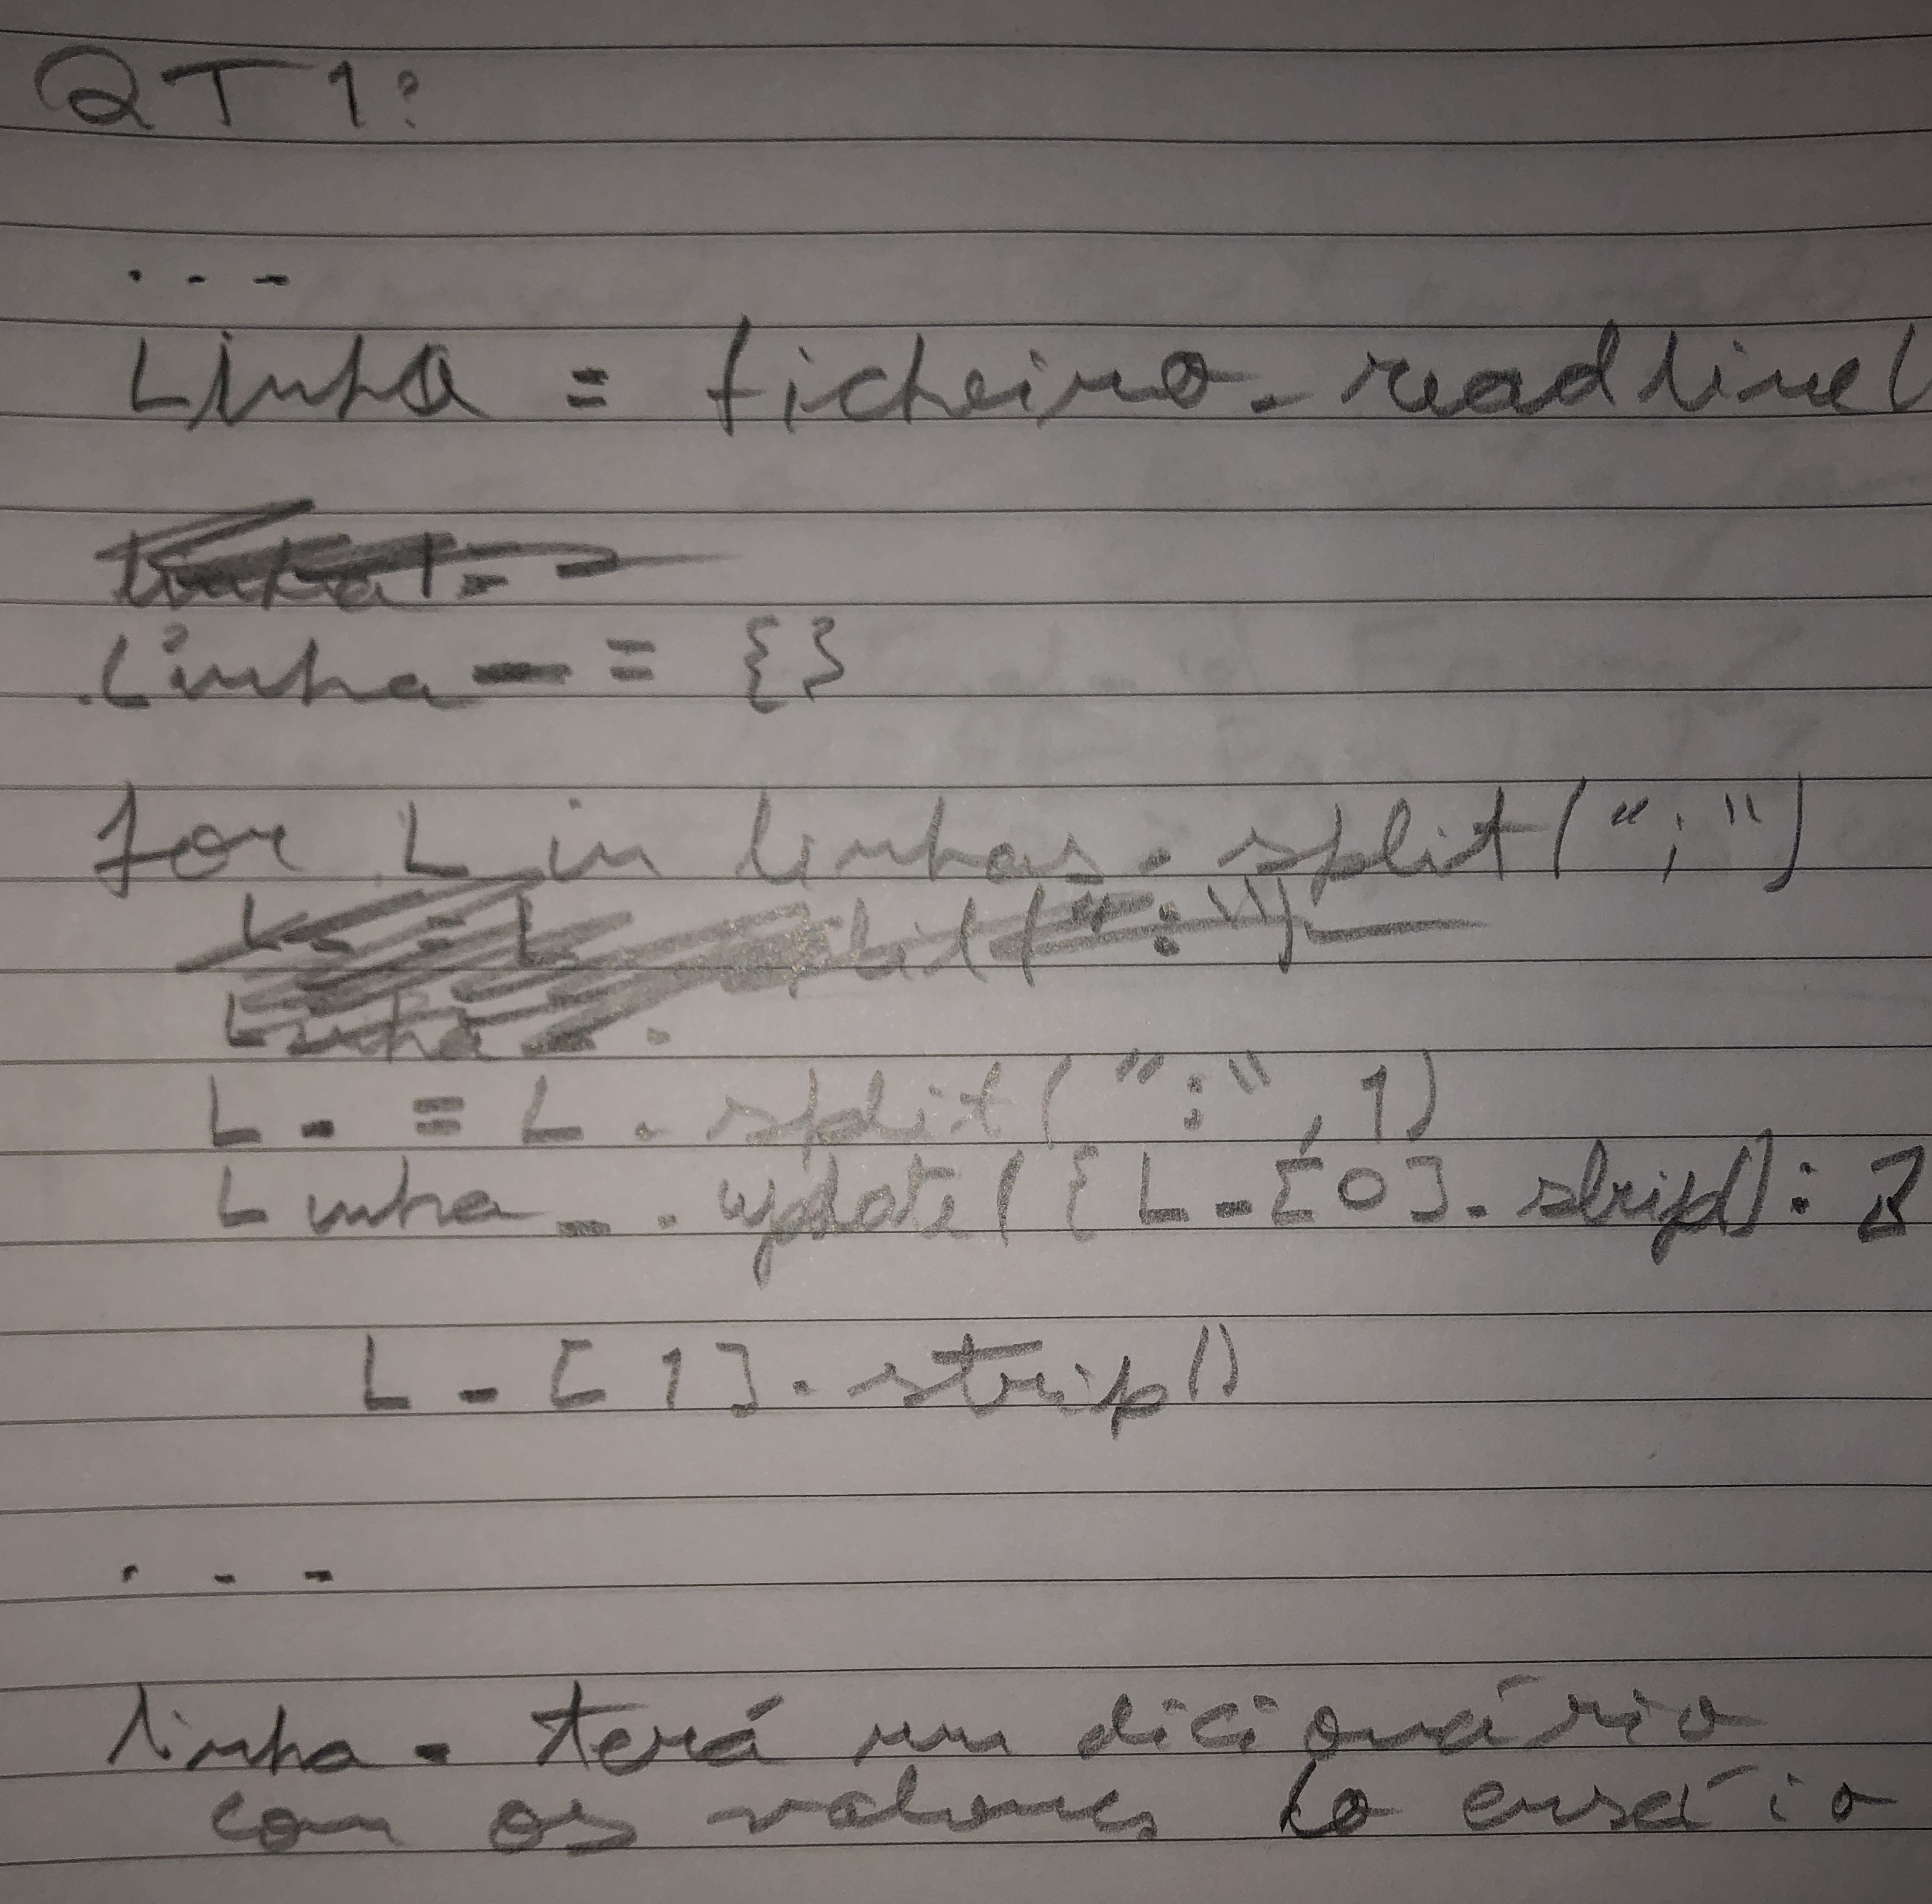 QT1:
...
Linha = ficheiro.readline(
Linha_ = {}
for L in linhas.split(";")
L_ = L.split(":", 1)
Linha_.update({L_[0].strip():
L_[1].strip()
...
linha_ terá um dicionário
com os valores do ensaio